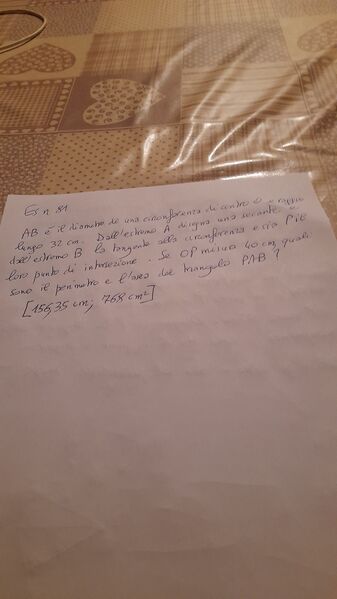 Es n. 81
AB é il diametro di una circonferenza di centro O e raggio
lungo 32 cm. Dall'estremo A disegna una secante e
dall'estremo B la tangente alla circonferenza e sia P il
loro punto di intersezione. Se OP misura 40 cm, quali
sono il perimetro e l'area del triangolo PAB?
[156,35 cm; 768 cm²]